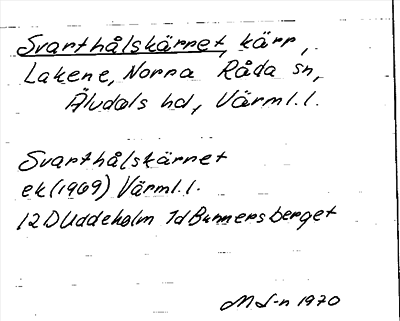 Svarthålskärret, kärr,
Lakene, Norra Råda sn,
Älvdals hd, Värml.l.
Svarthålskärret
ek (1969) Värml.l.
12D Uddeholm 1d Bunnersberget
1970